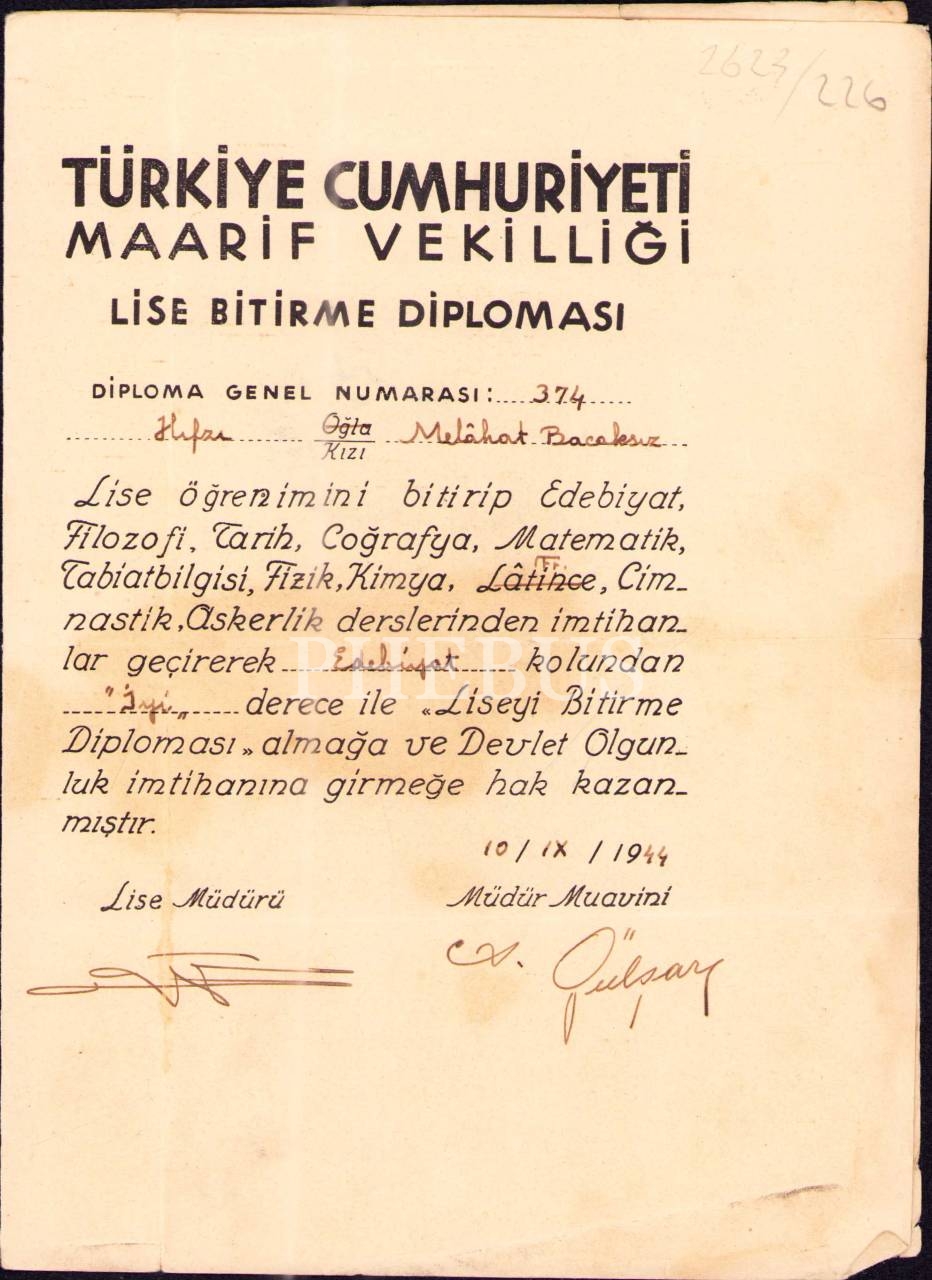 2623/226
TÜRKİYE CUMHURİYETİ
MAARİF VEKİLLİĞİ
LİSE BİTİRME DİPLOMASI
DİPLOMA GENEL NUMARASI: 374
Hıfzı Oğlu Melâhat Bacaksız
Kızı
Lise öğrenimini bitirip Edebiyat,
Filozofi, Tarih, Coğrafya, Matematik,
Fr.
Tabiatbilgisi, Fizik, Kimya, Lâtince, Cim-
nastik, Askerlik derslerinden imtihan-
lar geçirerek Edebiyat kolundan
"İyi" derece ile «Liseyi Bitirme
Diploması» almağa ve Devlet Olgun-
luk imtihanına girmeğe hak kazan-
mıştır.
10 / IX / 1944
Lise Müdürü Müdür Muavini
Gülşary
PHEBUS